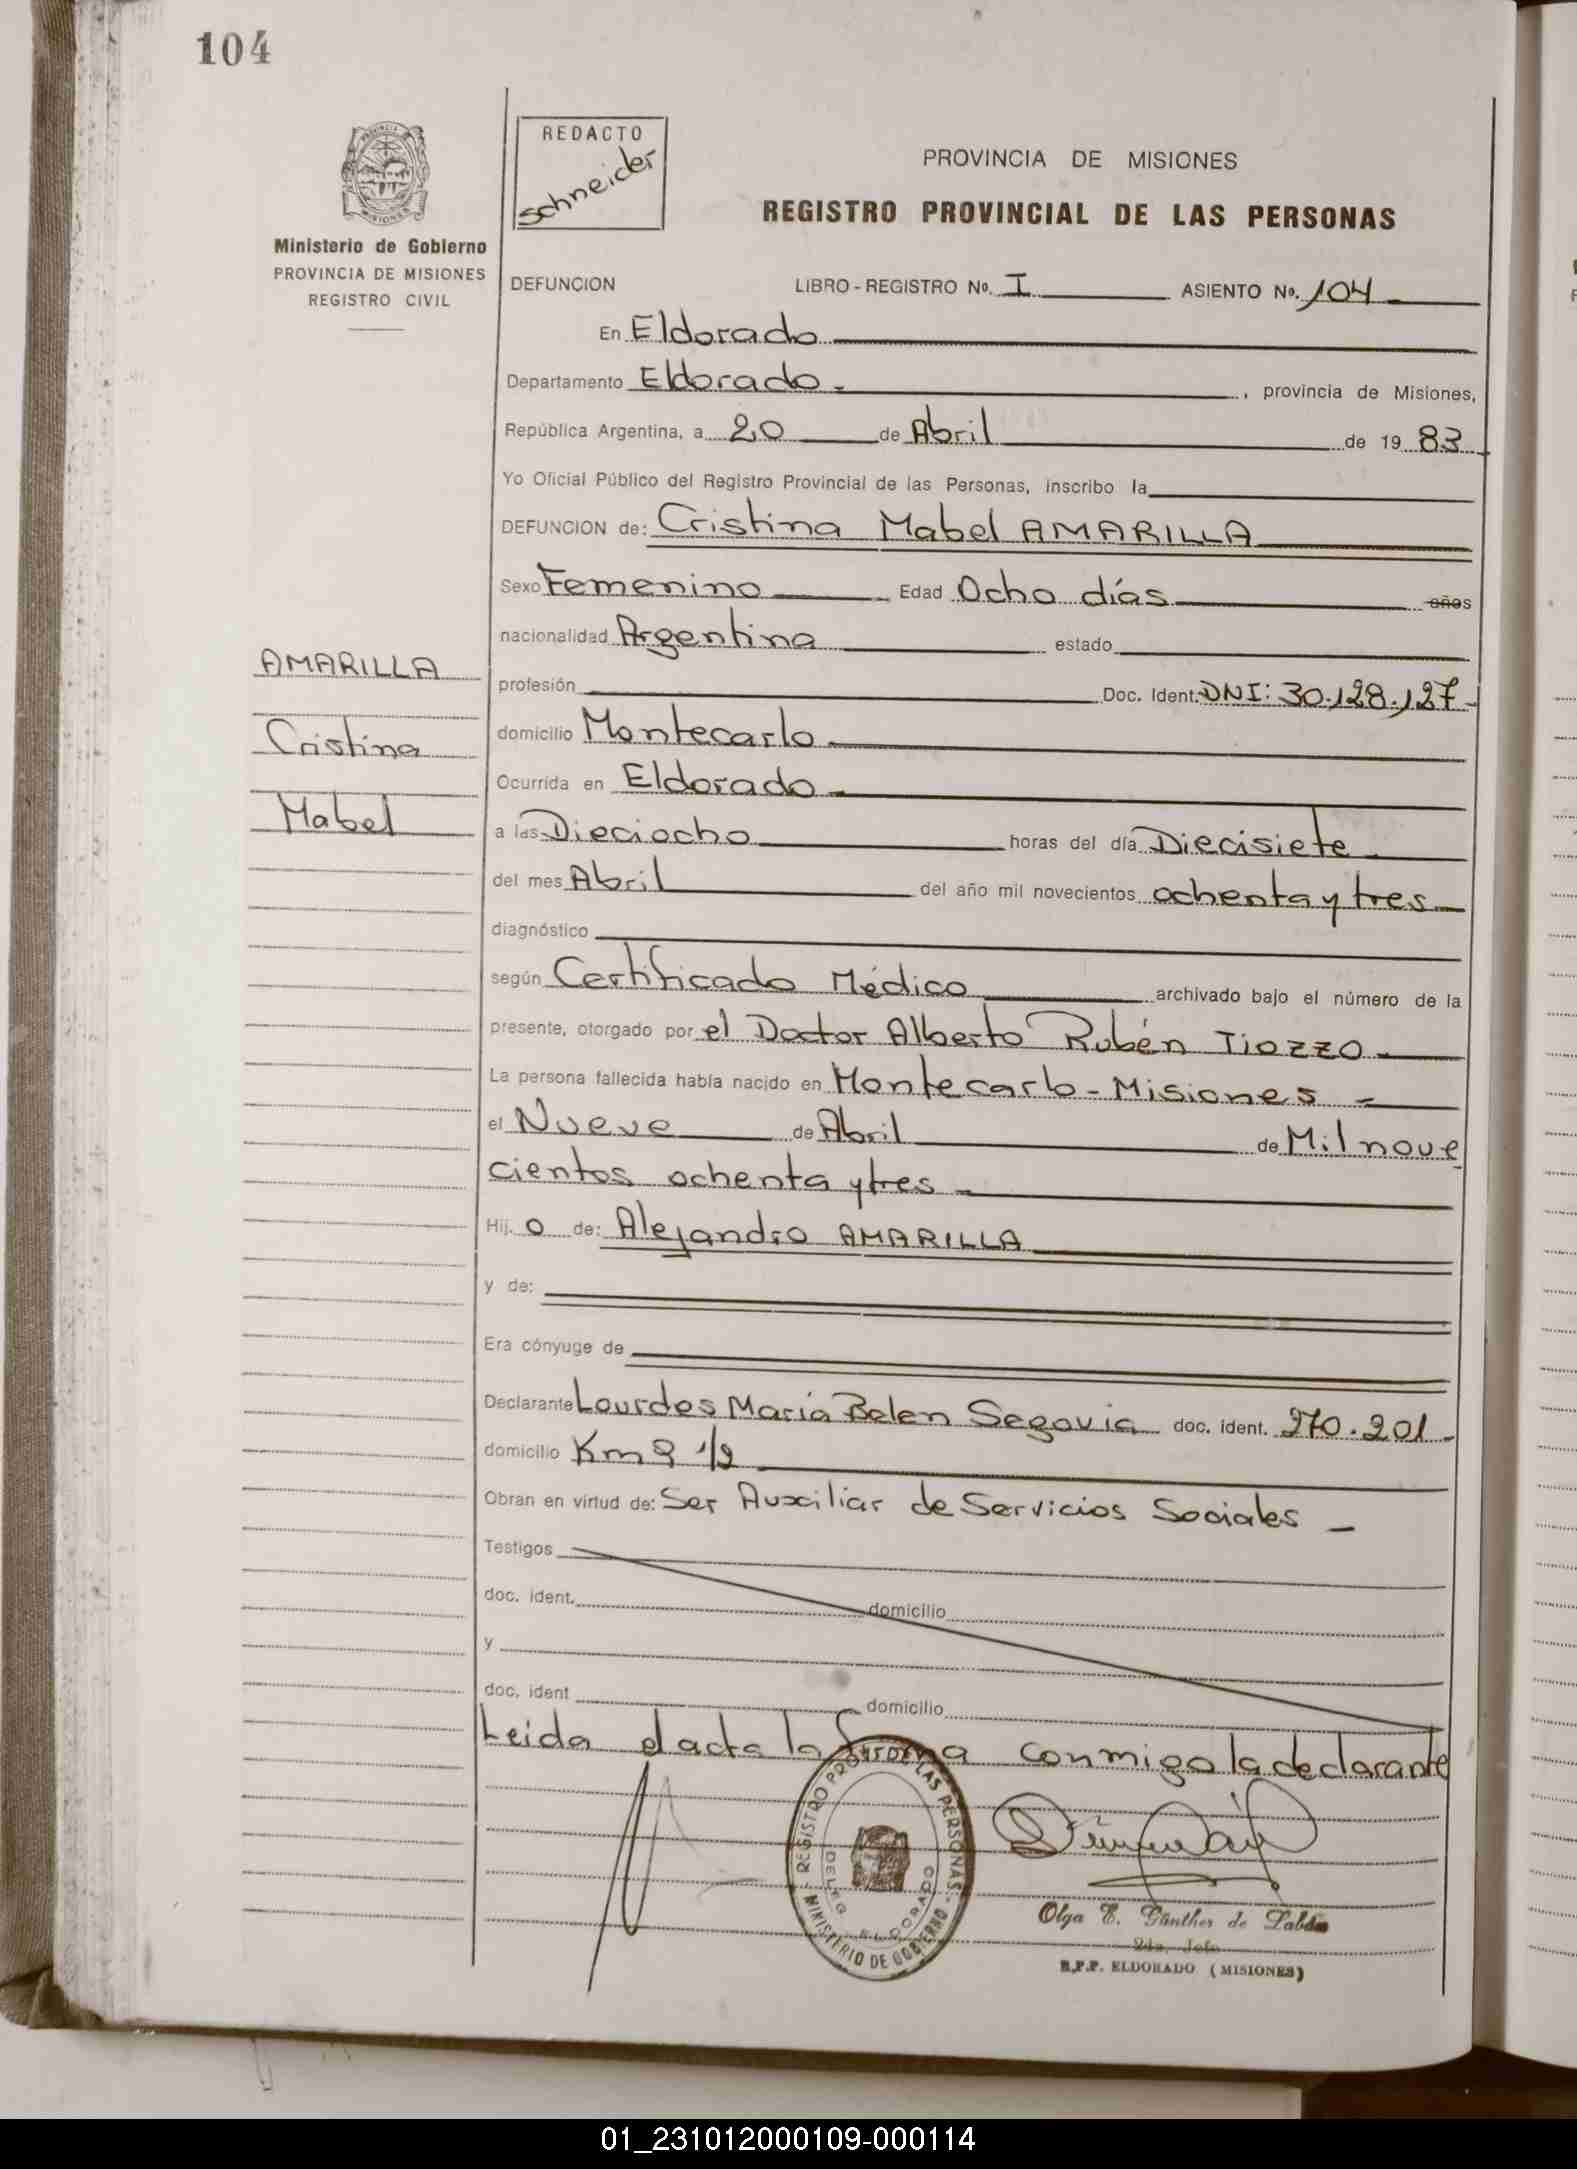 104
REDACTO
Schneider
Ministerio de Gobierno
PROVINCIA DE MISIONES
REGISTRO CIVIL
PROVINCIA DE MISIONES
REGISTRO PROVINCIAL DE LAS PERSONAS
DEFUNCION LIBRO - REGISTRO Nº. I ASIENTO Nº. 104
En Eldorado
Departamento Eldorado , provincia de Misiones,
República Argentina, a 20 de Abril de 19 83
Yo Oficial Público del Registro Provincial de las Personas, inscribo la
DEFUNCION de: Cristina Mabel AMARILLA
Sexo Femenino Edad Ocho días años
nacionalidad Argentina estado
profesión Doc. Ident. DNI: 30.128.127
domicilio Montecarlo
Ocurrida en Eldorado
a las Dieciocho horas del día Diecisiete
del mes Abril del año mil novecientos ochenta y tres
diagnóstico
según Certificado Médico archivado bajo el número de la
presente, otorgado por el Doctor Alberto Rubén Tiozzo
La persona fallecida había nacido en Montecarlo - Misiones
el Nueve de Abril de Mil nove
cientos ochenta y tres
Hij. o de: Alejandro AMARILLA
y de:
Era cónyuge de
Declarante Lourdes María Belen Segovia doc. ident. 270.201
domicilio Km 9 1/2
Obran en virtud de: Ser Auxiliar de Servicios Sociales
Testigos
doc. ident. domicilio
y
doc. ident domicilio
Leida el acta la firma conmigo la declarante
AMARILLA
Cristina
Mabel
REGISTRO PROV. DE LAS PERSONAS
MINISTERIO DE GOBIERNO
DELEG. ELDORADO
Olga E. Günther de
2da. Jefe
R.P.P. ELDORADO (MISIONES)
01_231012000109-000114